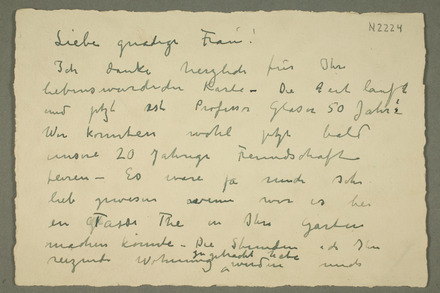 N2224
Liebe gnädige Frau!
Ich danke herzlich für Ihre
liebenswürdige Karte – Die Zeit lauft
und jetzt ist Professor Glaser 50 Jahre
Wir könnten wohl jetzt bald
unsere 20 Jahrige Freundschaft
feiern – Es ware ja sehr
lieb gewesen wenn wir es bei
en Glasse The in Ihre Garten
machen könnte – Die Stunden ich in Ihr
reizende Wohnung zugebracht habe
werden mich